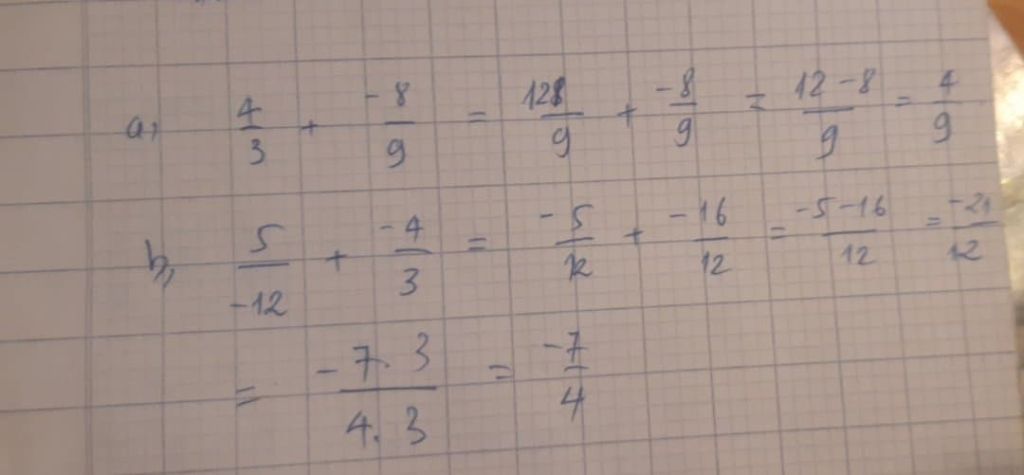 a, 4/3 + -8/9 = 12/9 + -8/9 = 12-8/9 = 4/9
b, 5/-12 + -4/3 = -5/12 + -16/12 = -5-16/12 = -21/12
= -7.3/4.3 = -7/4